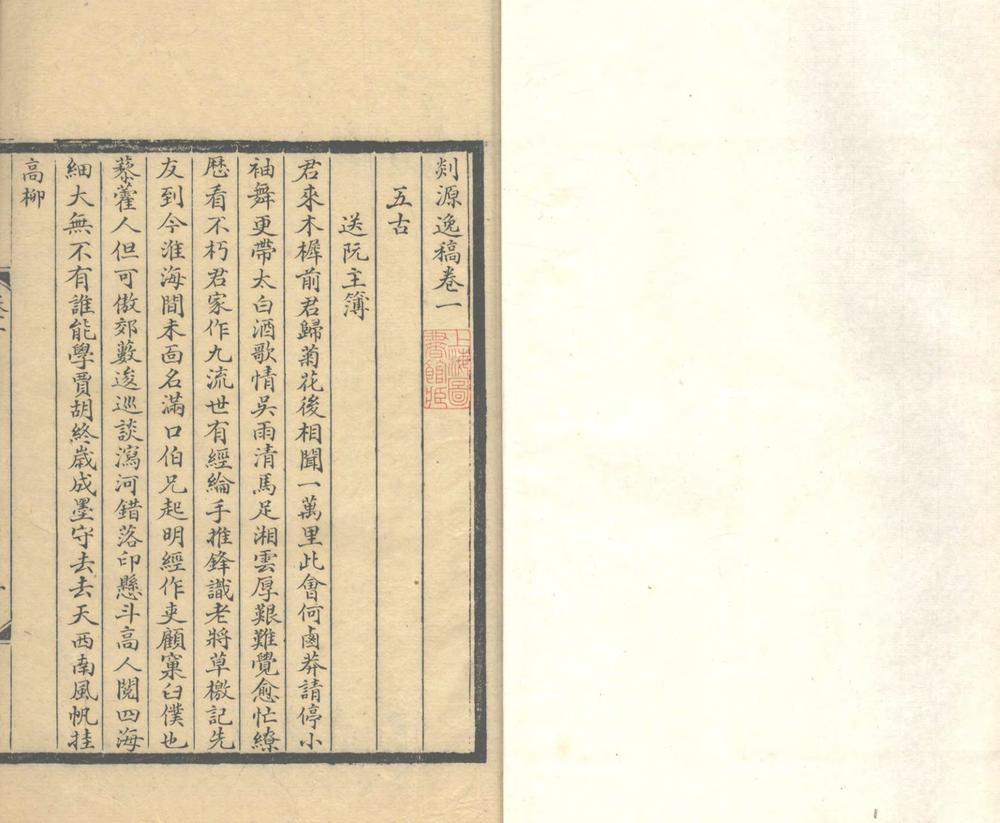 剡源逸稿卷一
上海圖書館藏
五古
送阮主簿
君來木樨前君歸菊花後相聞一萬里此會何鹵莽請停小
袖舞更帶太白酒歌情吳雨清馬足湘雲厚艱難覺愈忙繚
歷看不朽君家作九流世有經綸手推鋒識老將草檄記先
友到今淮海間未面名滿口伯兄起明經作吏顧窠臼僕也
藜藿人但可傲郊藪逡巡談瀉河錯落印懸斗高人閱四海
細大無不有誰能學賈胡終歲成墨守去去天西南風帆挂
高柳